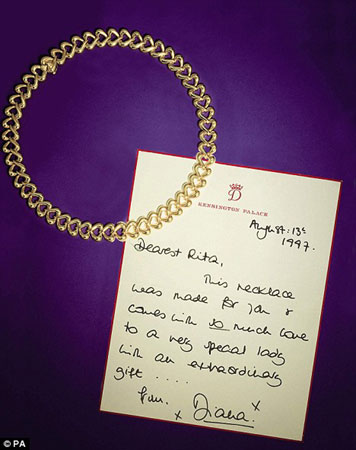 D
KENSINGTON PALACE
August: 13th
1997.
Dearest Rita,
This necklace
was made for you &
comes with so much love
to a very special lady
with an extraordinary
gift ....
from.
x Diana. x
© PA